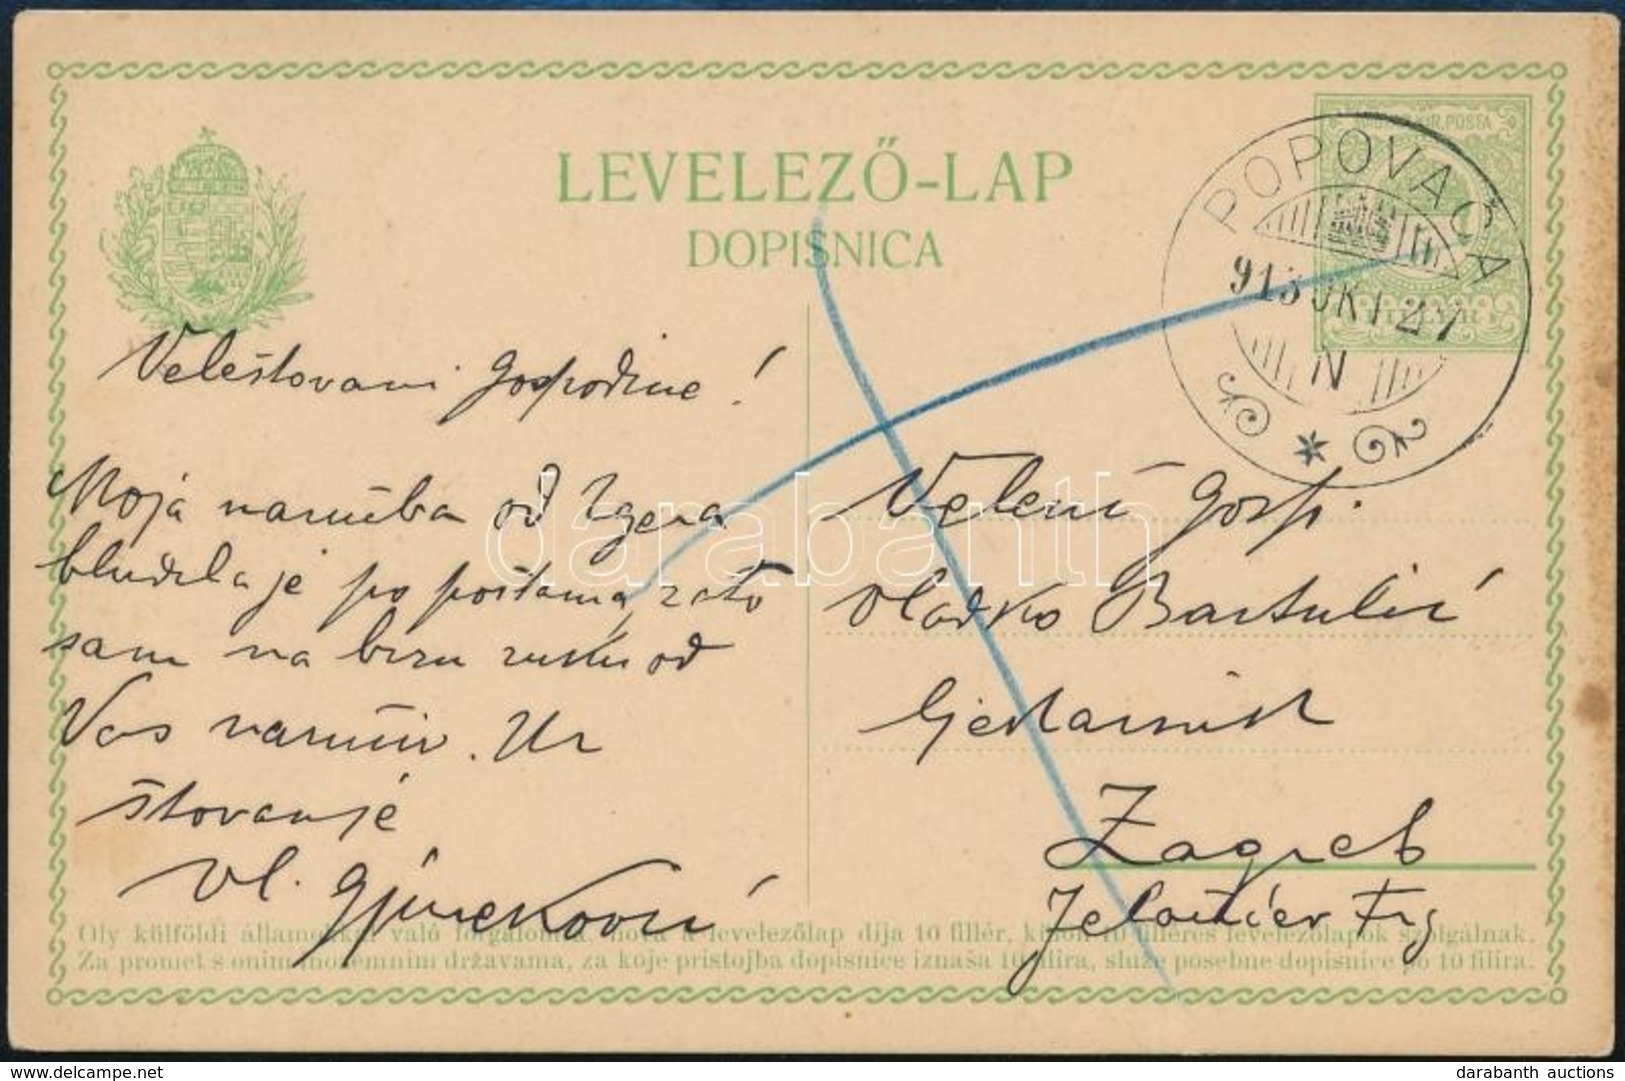 LEVELEZŐ-LAP
DOPISNICA
KIR. POSTA
POPOVAČA
913 OKT 27
N
Veleštovani gospodine!
Moja narudžba od
bludila je po poštama, zato
sam na brzu ruku od
Vas naručio. Uz
štovanje
Vl. Gjureković
Veleui gosp.
Vladko Bartulić
Ljekarnik
Zagreb
Jelačićev trg
Oly külföldi államokkal való forgalomra, hova a levelezőlap díja 10 fillér, külön 10 filléres levelezőlapok szolgálnak.
Za promet s onim inozemnim državama, za koje pristojba dopisnice iznaša 10 filira, služe posebne dopisnice po 10 filira.
darabanth
darabanth auctions